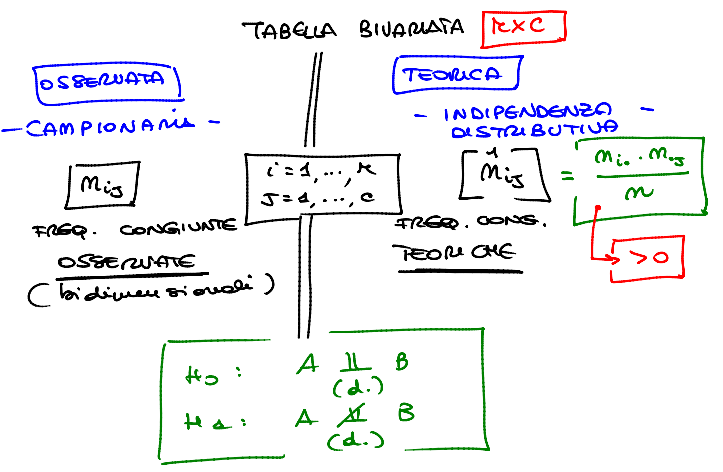 TABELLA BIVARIATA K×C
OSSERVATA
- CAMPIONARIA -
n_ij
FREQ. CONGIUNTE
OSSERVATE
(bidimensionali)
i = 1, ..., K
J = 1, ..., C
TEORICA
- INDIPENDENZA -
DISTRIBUTIVA
n̂_ij = n_i. · n_.j / n
FREQ. CONG.
TEORICHE
> 0
H0 : A ⫫ B
(d.)
H1 : A ⫫̸ B
(d.)